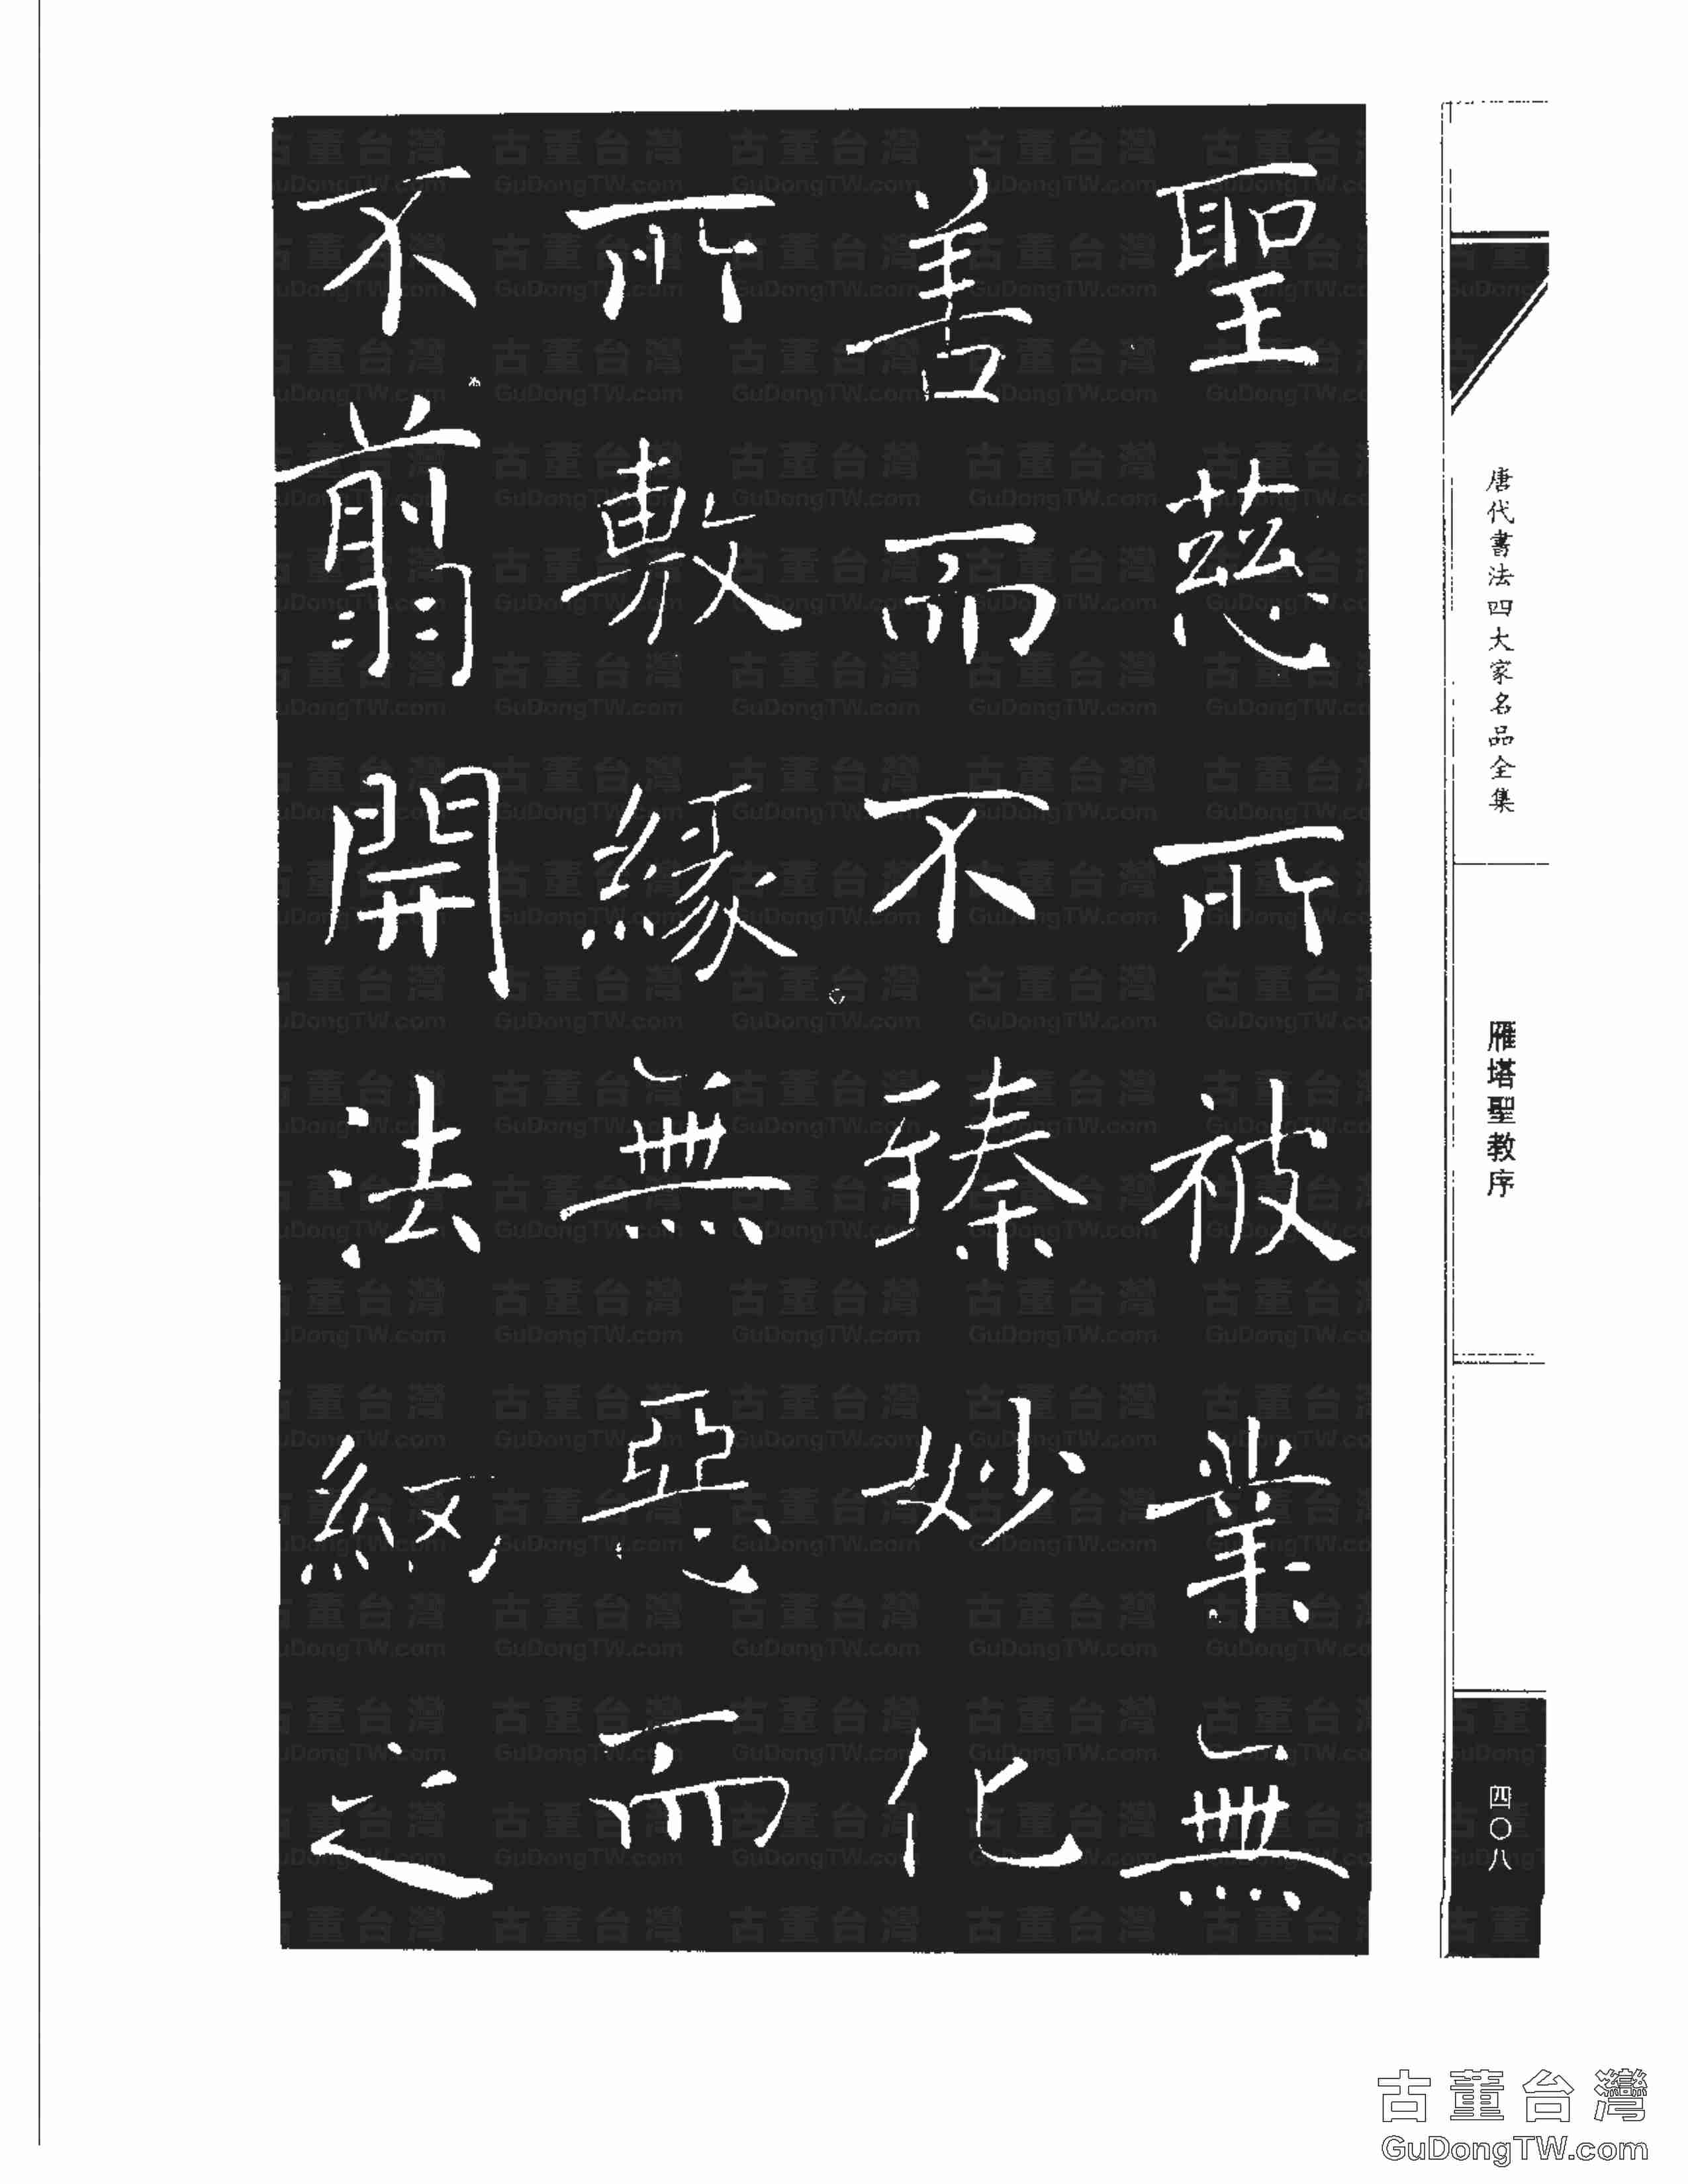 聖慈所被業無
善而不臻妙化
所敷緣無惡而
不翦開法網之
唐代書法四大家名品全集
雁塔聖教序
四〇八
古董台灣
GuDongTW.com